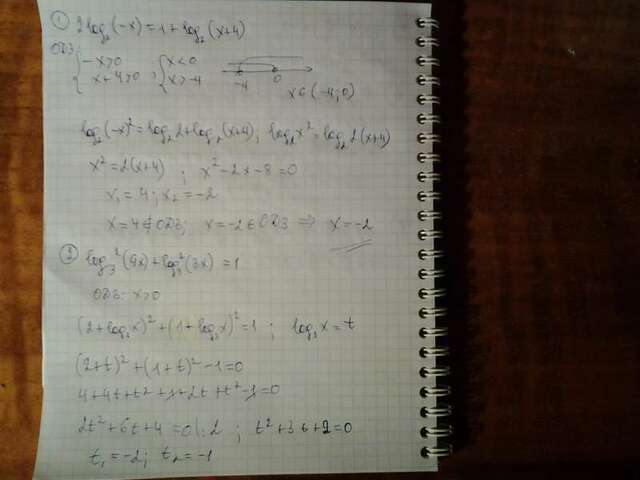 ① 2log₂(-x)=1+log₂(x+4)
ОДЗ: { -x>0 ; { x<0
x+4>0 x>-4
-4 0
x∈(-4;0)
log₂(-x)²=log₂2+log₂(x+4); log₂x²=log₂2(x+4)
x²=2(x+4) ; x²-2x-8=0
x₁=4; x₂=-2
x=4∉ОДЗ; x=-2∈ОДЗ ⇒ x=-2
② log₃²(9x)+log₃²(3x)=1
ОДЗ: x>0
(2+log₃x)²+(1+log₃x)²=1 ; log₃x=t
(2+t)²+(1+t)²-1=0
4+4t+t²+1+2t+t²-1=0
2t²+6t+4=0|:2 ; t²+3t+2=0
t₁=-2; t₂=-1